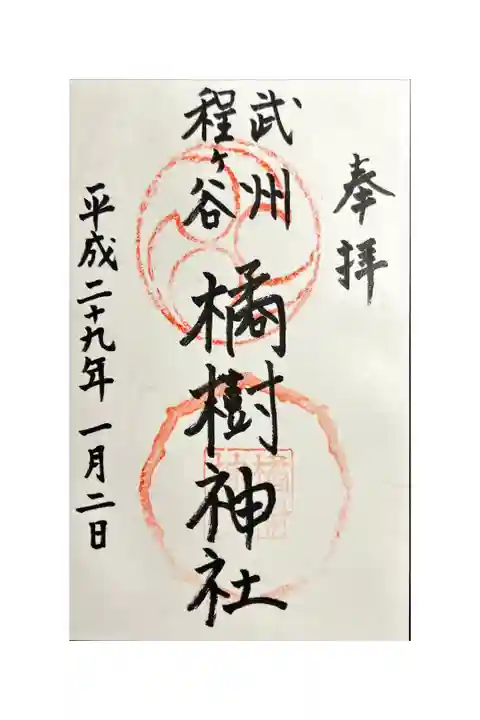 奉拝
武州
程ヶ谷
橘樹神社
平成二十九年一月二日